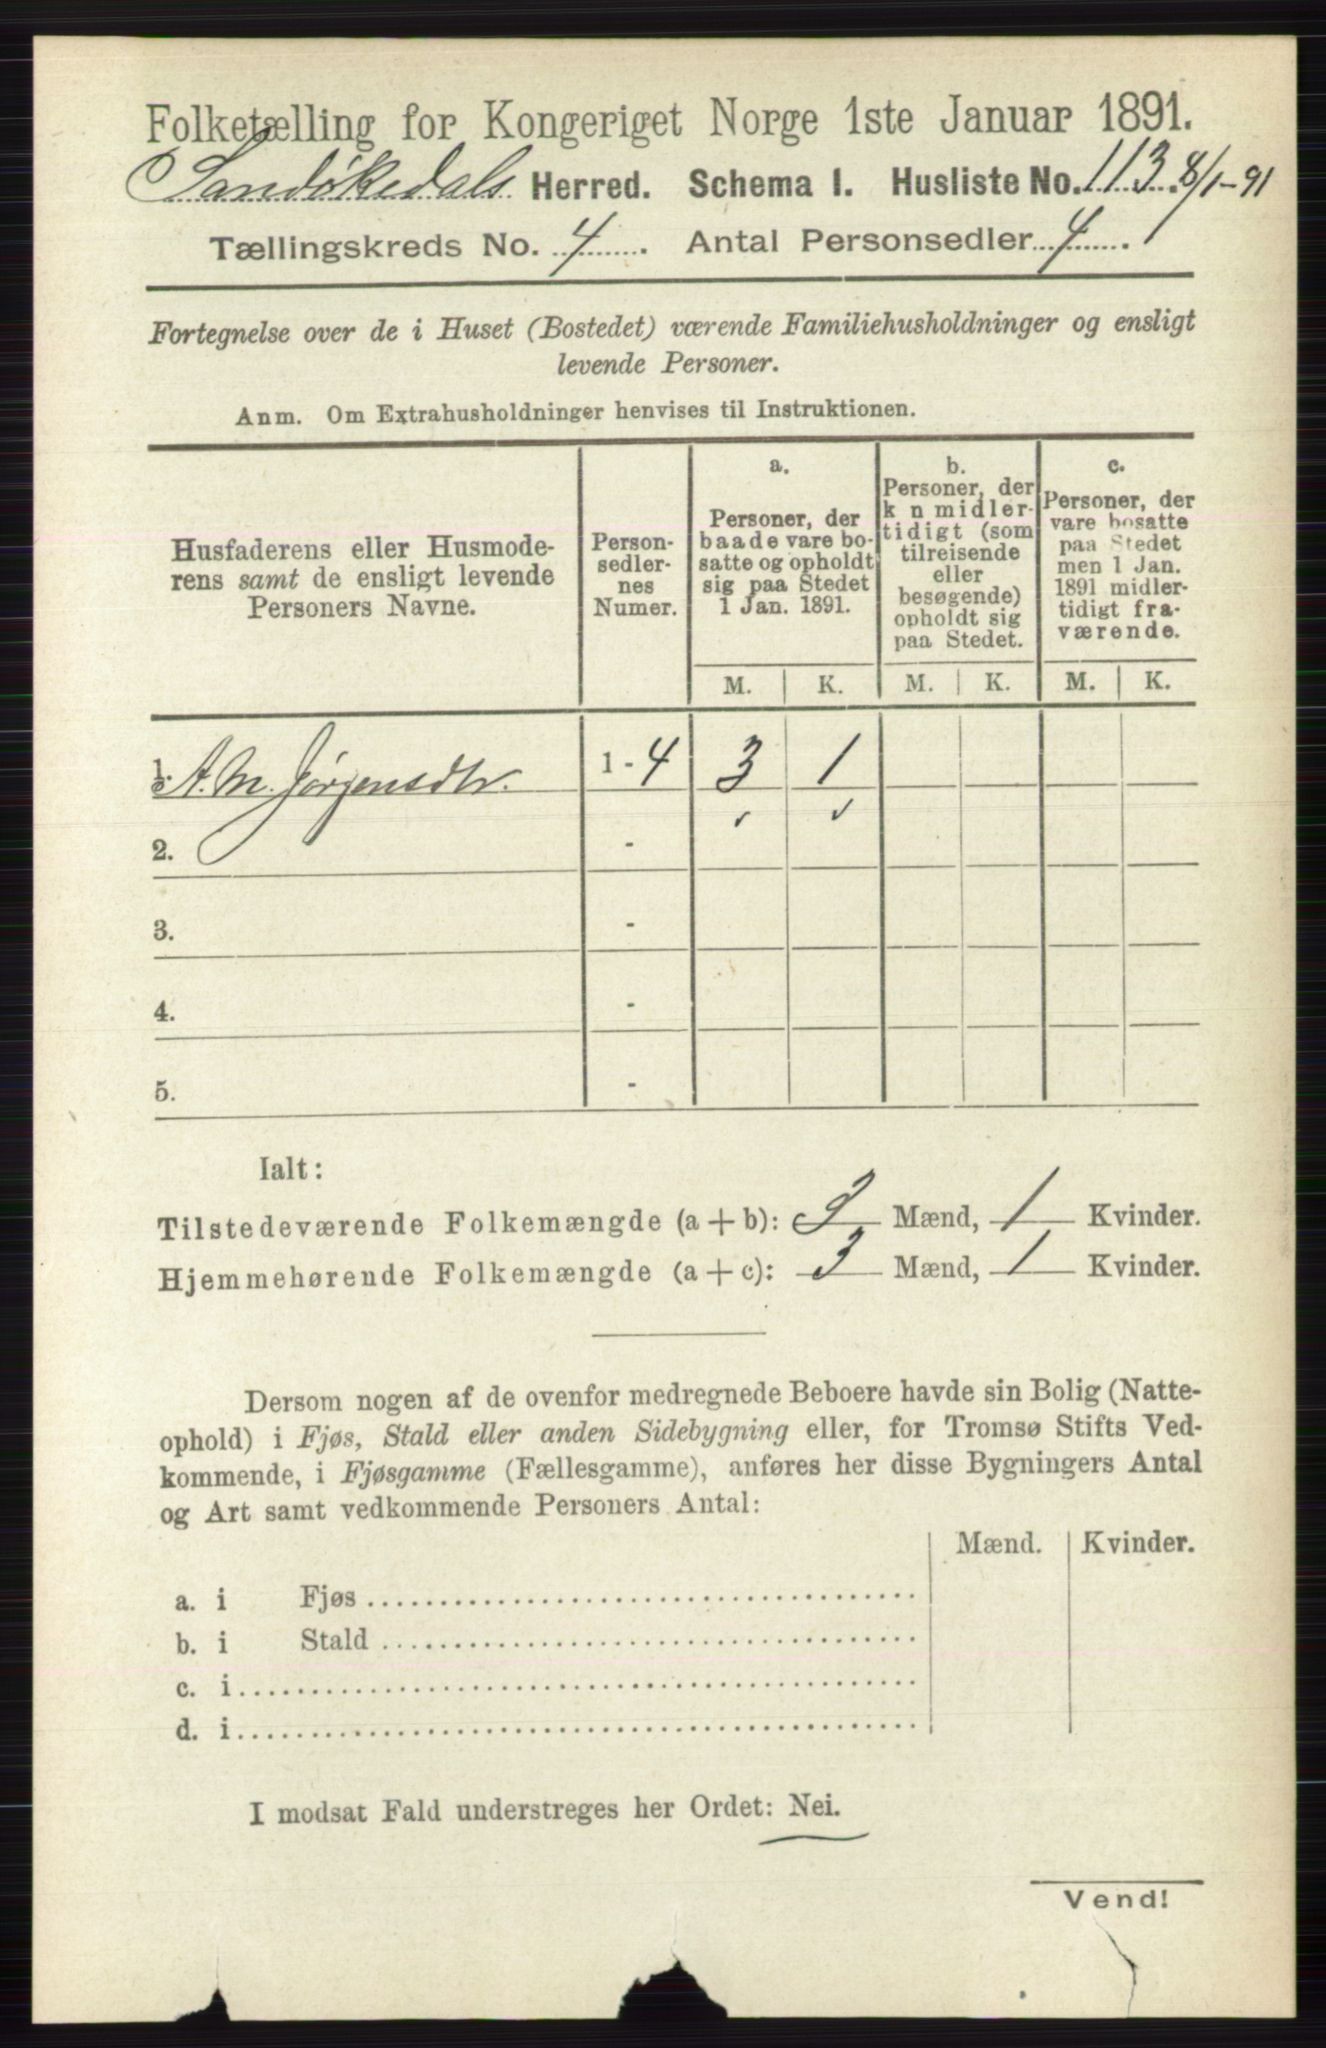 Folketælling for Kongeriget Norge 1ste Januar 1891.
Sandøkedals Herred. Schema I. Husliste No. 113. 8/1-91
Tællingskreds No. 4. Antal Personsedler 4.
Fortegnelse over de i Huset (Bostedet) værende Familiehusholdninger og ensligt
levende Personer.
Anm. Om Extrahusholdninger henvises til Instruktionen.
Husfaderens eller Husmode-
rens samt de ensligt levende
Personers Navne.
Person-
sedler-
nes
Numer.
a.
Personer, der
baade vare bo-
satte og opholdt
sig paa Stedet
1 Jan. 1891.
b.
Personer, der
k n midler-
tidigt (som
tilreisende
eller
besøgende)
opholdt sig
paa Stedet.
c.
Personer, der
vare bosatte
paa Stedet
men 1 Jan.
1891 midler-
tidigt fra-
værende.
M. K. M. K. M. K.
1. A. M. Jørgensdtr. 1 - 4 3 1
2. -
3. -
4. -
5. -
Ialt:
Tilstedeværende Folkemængde (a + b): 3 Mænd, 1 Kvinder.
Hjemmehørende Folkemængde (a + c): 3 Mænd, 1 Kvinder.
Dersom nogen af de ovenfor medregnede Beboere havde sin Bolig (Natte-
ophold) i Fjøs, Stald eller anden Sidebygning eller, for Tromsø Stifts Ved-
kommende, i Fjøsgamme (Fællesgamme), anføres her disse Bygningers Antal
og Art samt vedkommende Personers Antal:
Mænd. Kvinder.
a. i Fjøs
b. i Stald
c. i
d. i
I modsat Fald understreges her Ordet: Nei.
Vend!